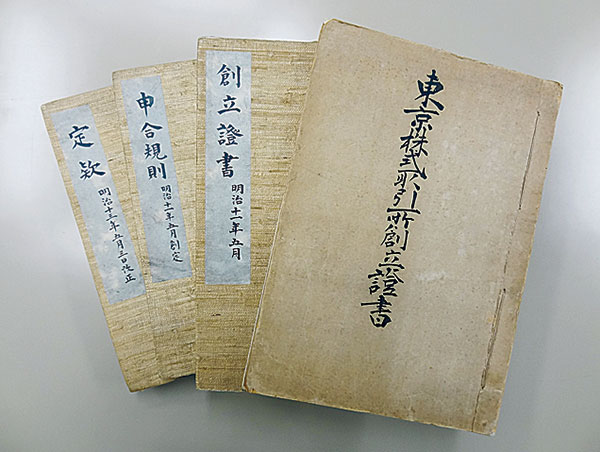 東京株式取引所創立證書
創立證書
明治十一年五月
申合規則
明治十一年五月創定
定欵
明治十三年五月三日改正